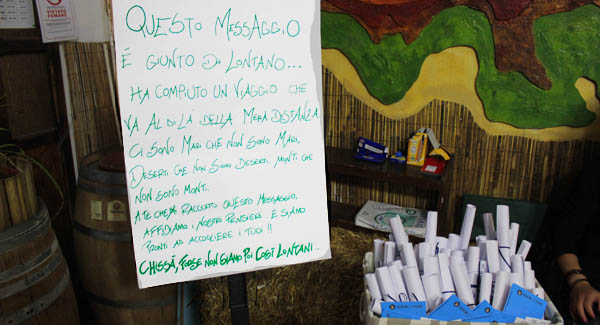 QUESTO MESSAGGIO
È GIUNTO DI LONTANO...
HA COMPIUTO UN VIAGGIO CHE
VA AL DI LÀ DELLA MERA DISTANZA
CI SONO MARI CHE NON SONO MARI,
DESERTI CHE NON SONO DESERTI. MONTI CHE
NON SONO MONTI.
A TE CHE HAI RACCOLTO QUESTO MESSAGGIO,
AFFIDIAMO I NOSTRI PENSIERI. E SIAMO
PRONTI AD ACCOGLIERE I TUOI!!
CHISSÀ, FORSE NON SIAMO POI COSÌ LONTANI...
VIETATO
FUMARE